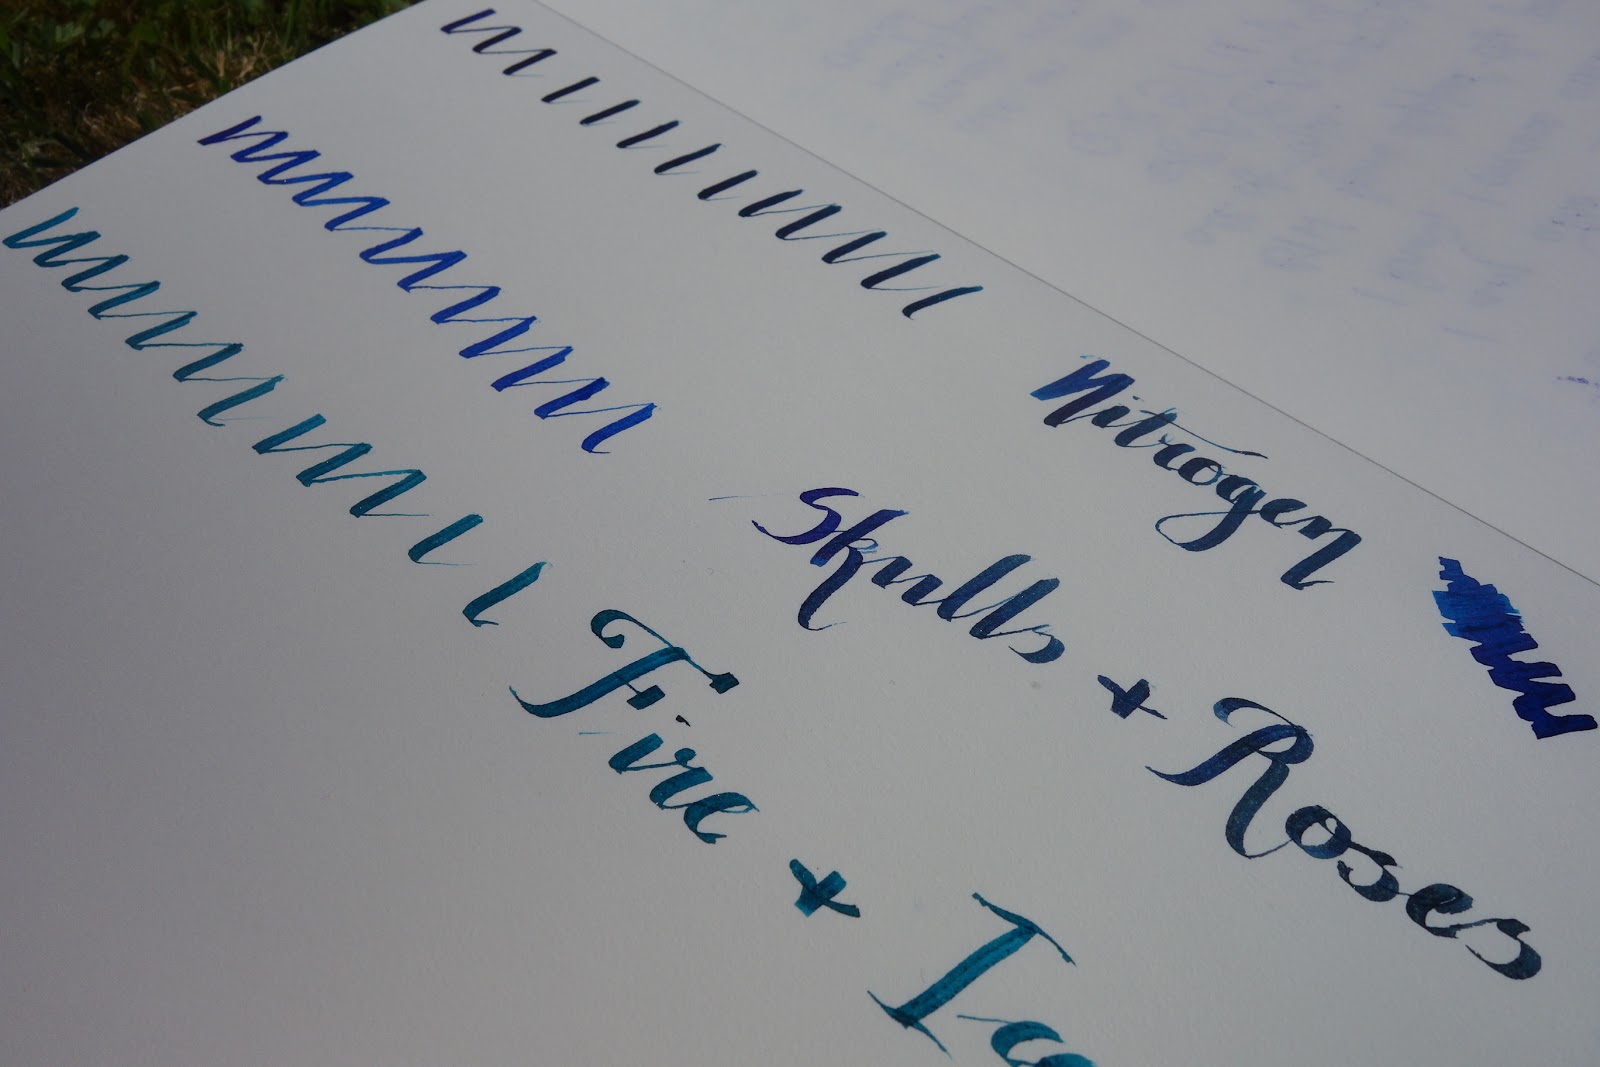 Nitrogen
Skulls + Roses
Fire +